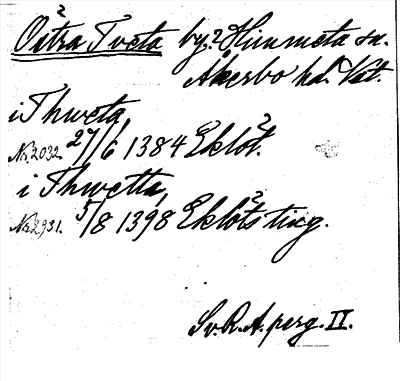 Östra Tveta by, Himmeta sn.
Åkerbo hd. Vst.
i Thweta,
Nr. 2032. 27/6 1384 Eklöt.
i Thwetta,
Nr. 2931. 5/8 1398 Eklöts ting.
Sv. R. A. perg. II.